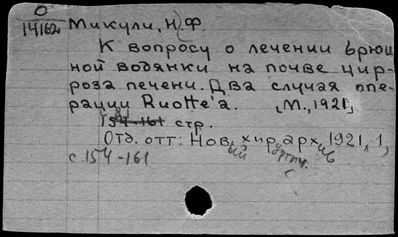 О
14162
Микули, Н.Ф.
К вопросу о лечении брюш
ной водянки на почве цир-
роза печени. Два случая опе-
рации Ruotte'а. М., 1921,
154-161 стр.
Отд. отт: Нов. хир. арх., 1921, 1,
с. 154-161